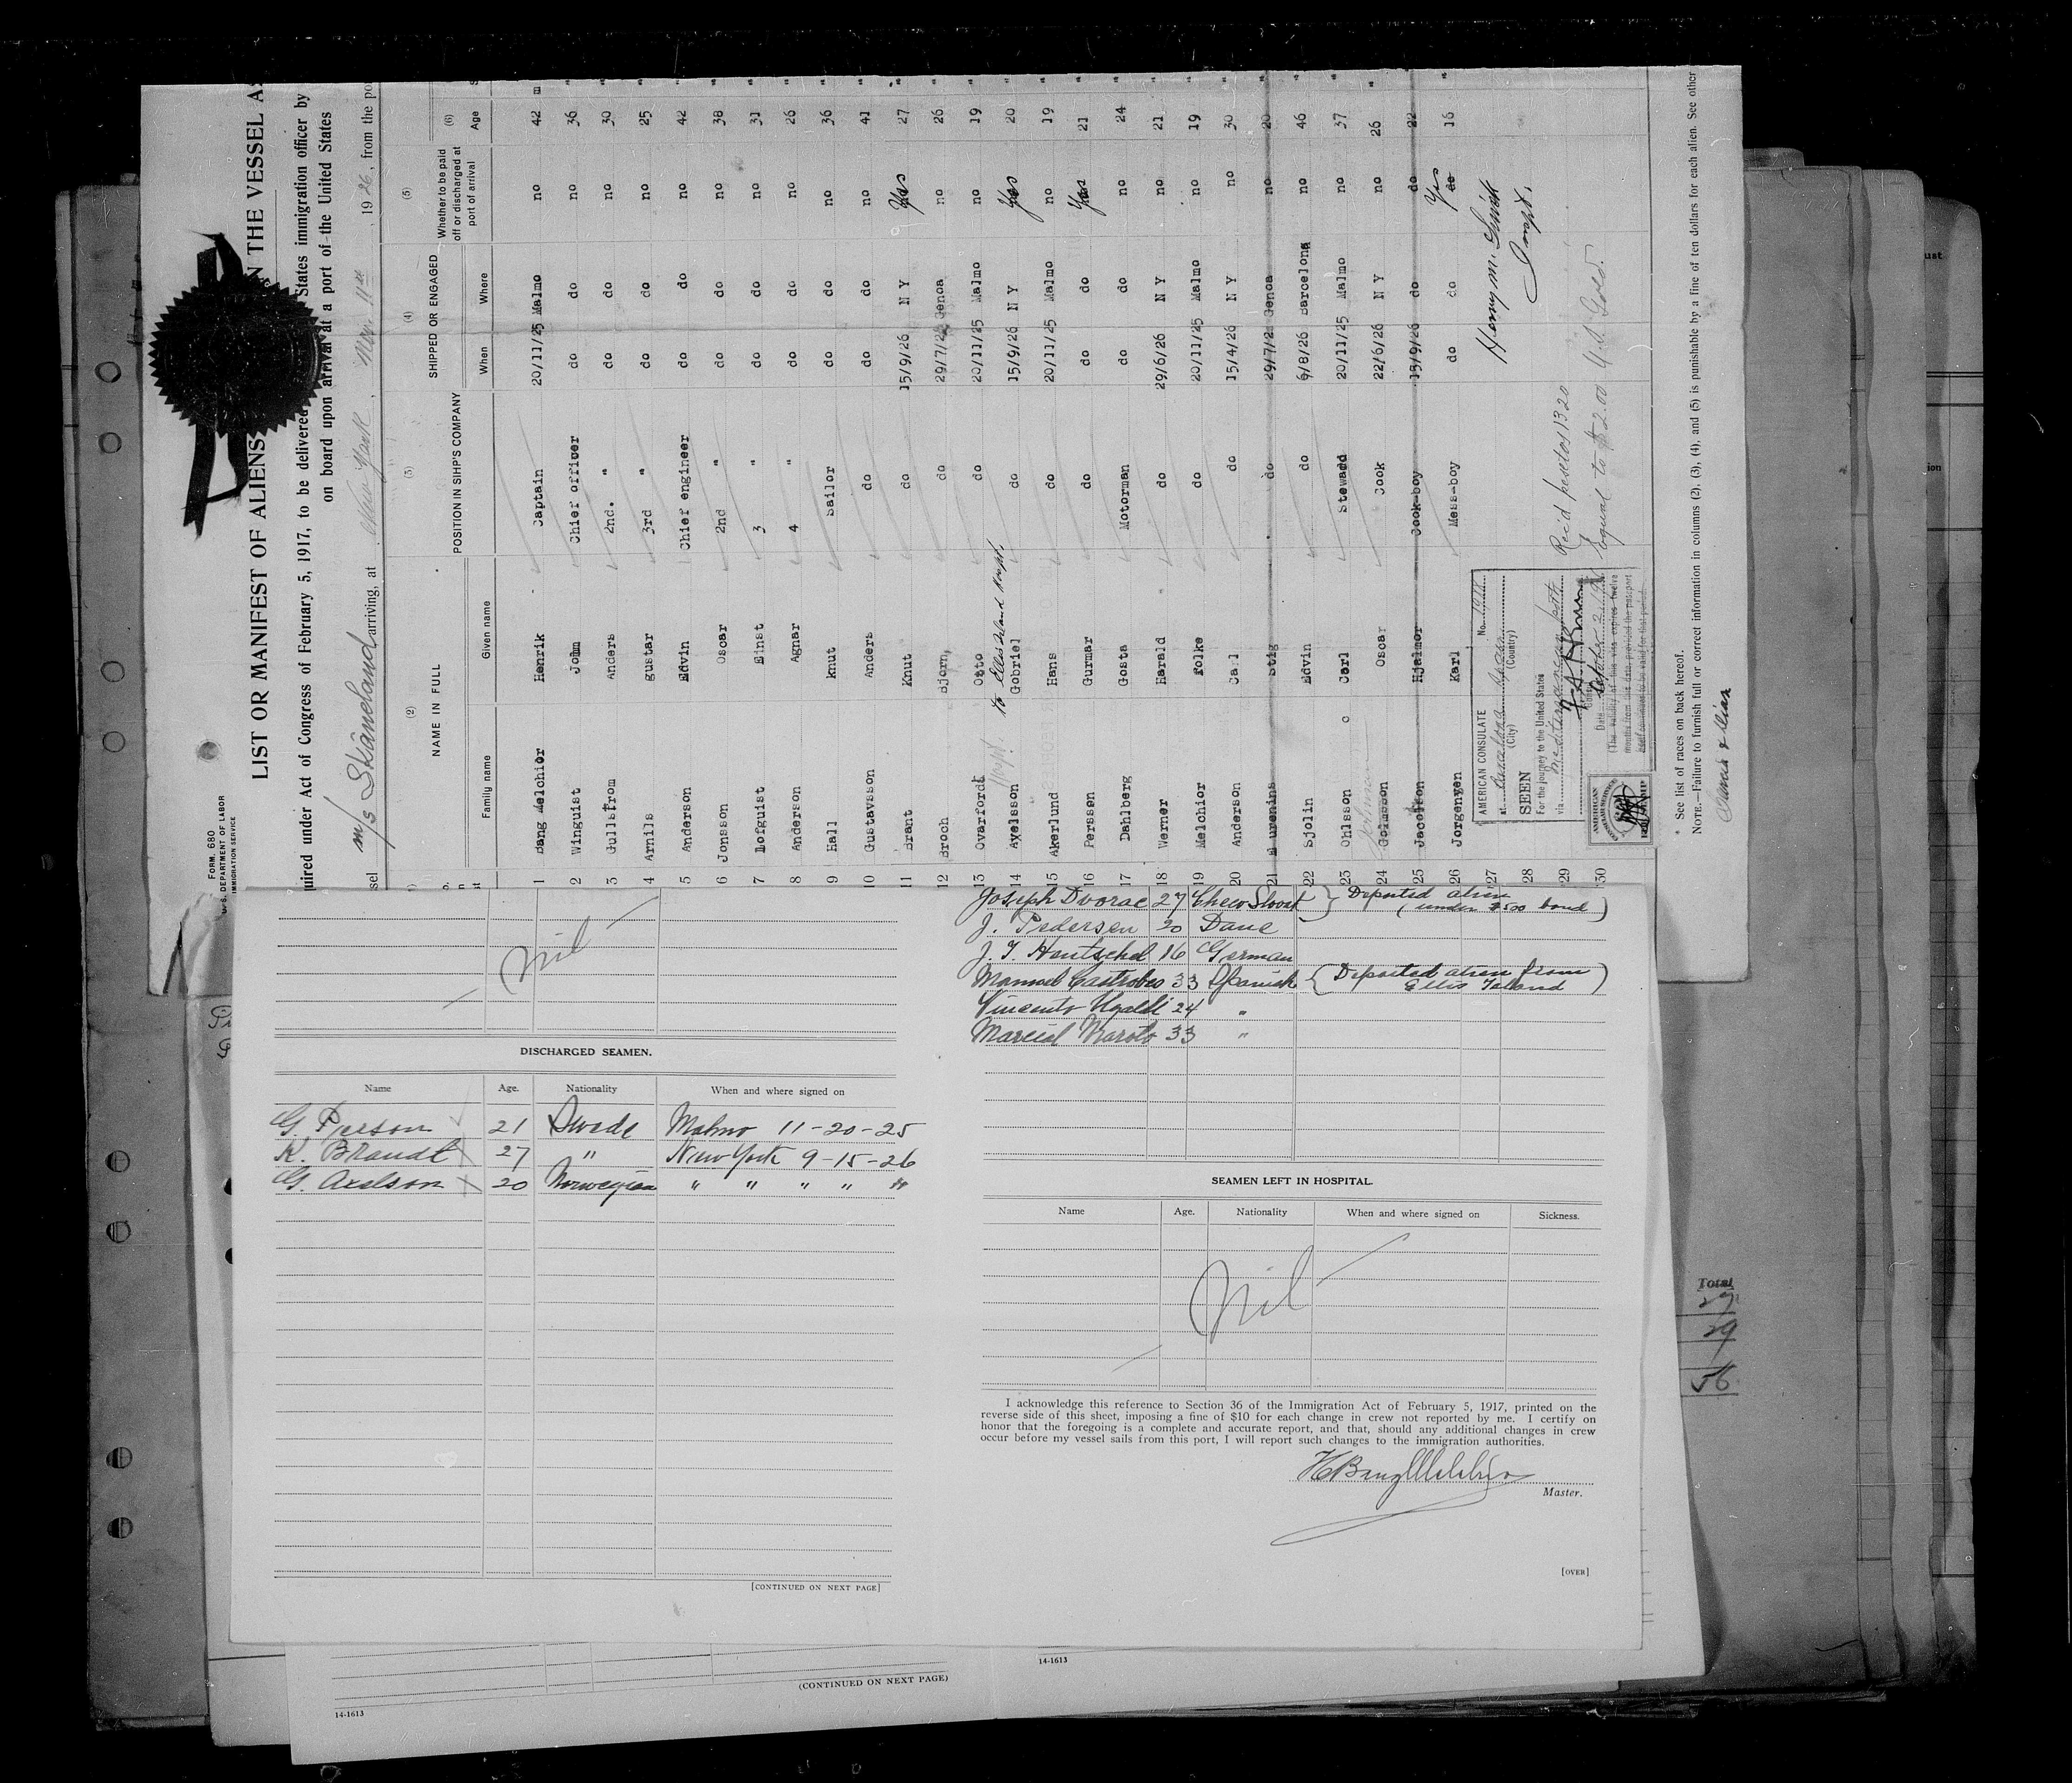 FORM 680
U.S. DEPARTMENT OF LABOR
IMMIGRATION SERVICE
LIST OR MANIFEST OF ALIENS
N THE VESSEL AS
quired under Act of Congress of February 5, 1917, to be delivered
States immigration officer by
on board upon arrival at a port of the United States
sel m/s Skåneland arriving, at New York, Nov. 11th, 1926, from the po
(2) (3) (4) (5) (6)
NAME IN FULL POSITION IN SIHP'S COMPANY SHIPPED OR ENGAGED Whether to be paid off or discharged at port of arrival Age
Family name Given name When Where
1 Bang Melchior Henrik Captain 20/11/25 Malmo no 42 m
2 Winguist John Chief officer do do no 36 "
3 Gullstrom Anders 2nd. " do do no 30 "
4 Arnils gustar 3rd " do do no 25 "
5 Anderson Edvin Chief engineer do do no 42 "
6 Jonsson Oscar 2nd " do do no 38 "
7 Lofguist Einst 3 " do do no 31 "
8 Anderson Agnar 4 " do do no 26 "
9 Hall knut Sailor do do no 36 "
10 Gustavsson Anders do do do no 41 "
11 Brant Knut do 15/9/26 N Y Yes 27 "
12 Broch Bjorn, do 29/7/26 Genoa no 26 "
13 Ovarfordt Otto do 20/11/25 Malmo no 19 "
to Ellis Island Hospt.
14 Axelsson Gobriel do 15/9/26 N Y Yes 20 "
15 Akerlund Hans do 20/11/25 Malmo no 19 "
16 Perssen Gurmar do do do Yes 21 "
17 Dahlberg Gosta Motorman do do no 24 "
18 Werner Harald do 29/6/26 N Y no 21 "
19 Melchior folke do 20/11/25 Malmo no 19 "
20 Anderson Carl do 15/4/26 N Y no 30 "
21 Laurenins Stig do 29/7/2 Genoa no 20 "
22 Sjolin Edvin do 6/8/26 Barcelona no 46 "
23 Ohlsson Carl Steward 20/11/25 Malmo no 37 "
24 Oscar Cook 22/6/26 N Y no 26 "
25 Jacobson Hjalmor Cook-boy 15/9/26 do do 22 "
26 Jorgenyen Karl Mess-boy do do Yes 16 "
27
28
29
30
Henry M. Smith
Inspt.
AMERICAN CONSULATE No.
at Barcelona Spain
(City) (Country)
SEEN
For the journey to the United States
via mediterranean ports
Date
(The validity of this visa expires twelve
months from this date, provided the passport
Recd pesetas 13 20
Equal to $2.00 U.S. Gold.
* See list of races on back hereof.
NOTE.—Failure to furnish full or correct information in columns (2), (3), (4), and (5) is punishable by a fine of ten dollars for each alien. See other
nil
DISCHARGED SEAMEN.
Name Age. Nationality When and where signed on
G. Pierson 21 Swede Malmo 11-20-25
K. Brandt 27 " New York 9-15-26
G. Axelson 20 Norwegian " " " " "
[CONTINUED ON NEXT PAGE]
Joseph Dvorac 27 Checo Slovak } Deported alien
( under $500 bond )
J. Pedersen 20 Dane
J. T. Hentschel 16 German
Manuel Castrobes 33 Spanish { Deported alien from )
Ellis Island
Vincento Ugaldi 24 "
Marcial Maroto 33 "
SEAMEN LEFT IN HOSPITAL.
Name Age. Nationality When and where signed on Sickness.
nil
I acknowledge this reference to Section 36 of the Immigration Act of February 5, 1917, printed on the
reverse side of this sheet, imposing a fine of $10 for each change in crew not reported by me. I certify on
honor that the foregoing is a complete and accurate report, and that, should any additional changes in crew
occur before my vessel sails from this port, I will report such changes to the immigration authorities.
H Bang Melchior
Master.
[OVER]
14-1613
(CONTINUED ON NEXT PAGE)
14-1613
Total
27
29
56